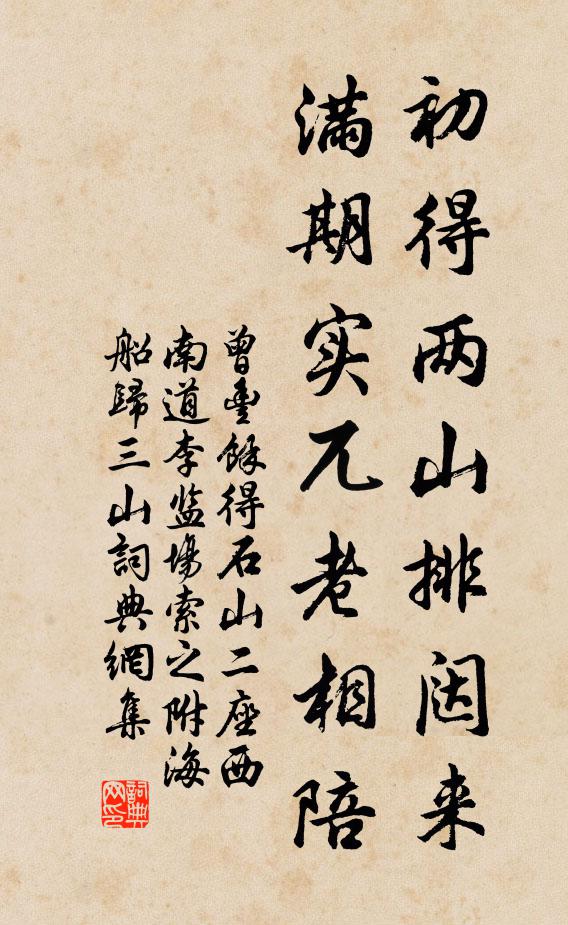 初得两山排闼来
满期实兀老相陪
曾丰馀得石山二座西
南道李监场索之附海
船歸三山詞典網集
詞典
网印